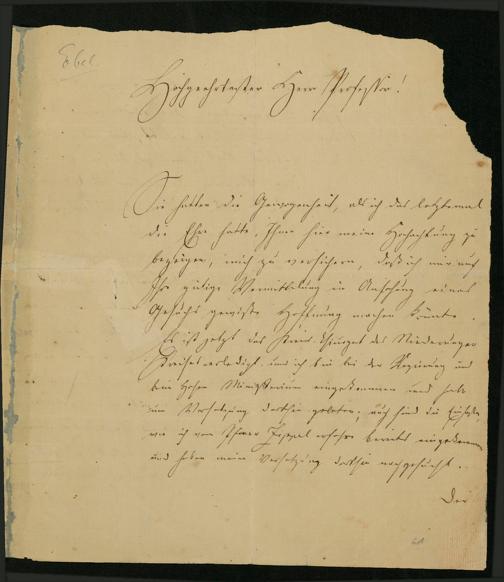 Ebel
Hochgeehrtester Herr Professor!
Sie hatten die Gewogenheit, als ich das letztemal
die Ehre hatte, Ihnen hier meine Hochachtung zu
bezeigen, mich zu versichern, daß ich mir auf
Ihre gütige Vermittelung in Ansehung eines
Gesuchs gewisse Hoffnung machen könnte.
Es ist jetzt das Kreis- des Niederunger
Kreises erledigt und ich bin bei der Regierung und
beim Hohen Ministerium eingekommen und habe
um Versetzung dorthin gebeten; auch sind die
wie ich von erfahre bereits eingekommen
und haben meine Versetzung dorthin nachgesucht.
Der